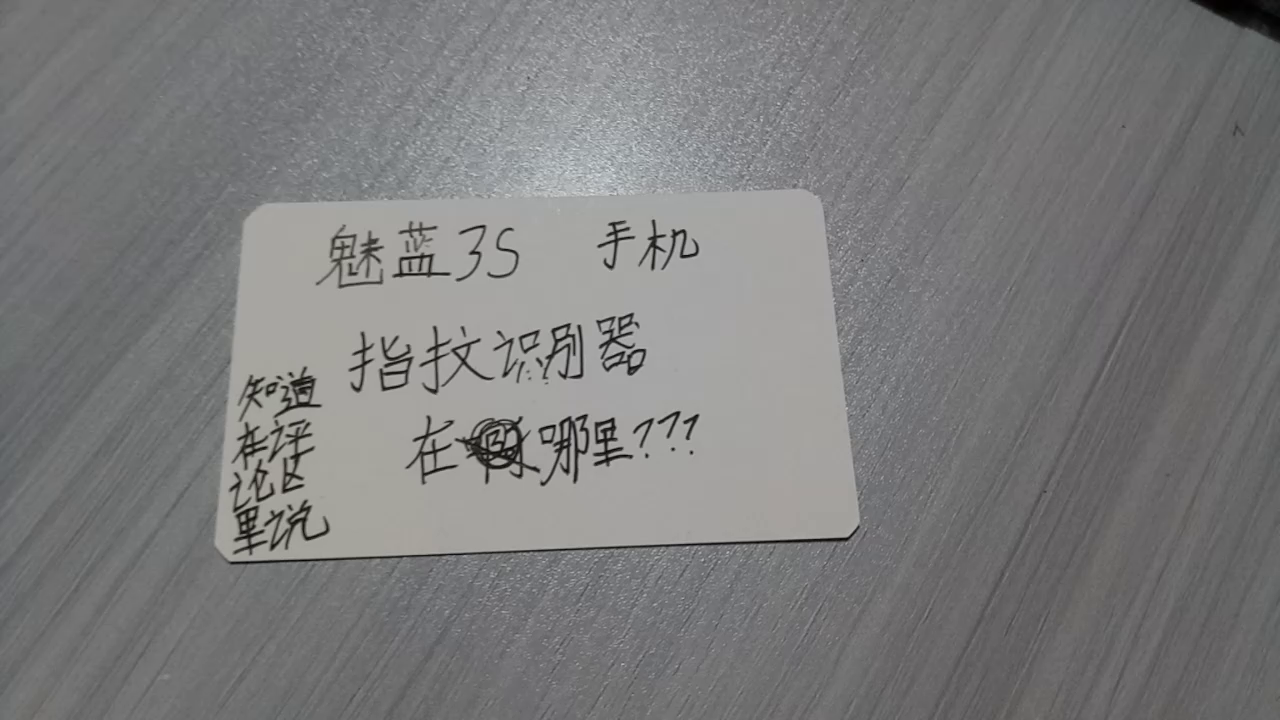 魅蓝3S 手机
指纹识别器
在哪里???
知道
在评
论区
里说